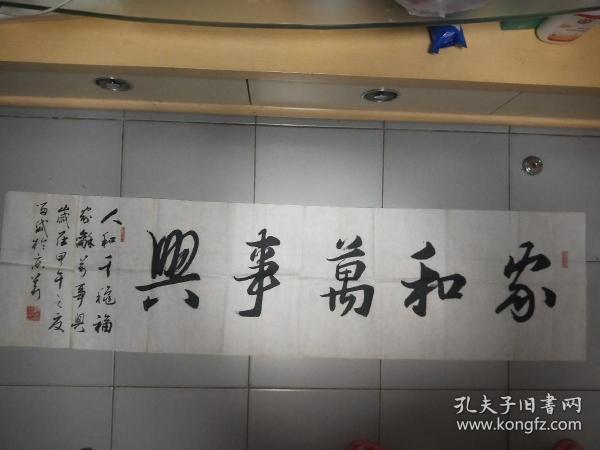 家和萬事興
人和千種福
家龢萬事興
歲在甲午之夏
孔夫子旧书网
www.kongfz.com